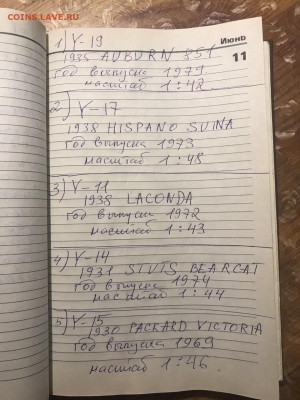 COINS.LAVE.RU
Июнь
11
1) Y-19
1935 AUBURN 851
год выпуска 1979
масштаб 1:42
2) Y-17
1938 HISPANO SUINA
год выпуска 1973
масштаб 1:48
3) Y-11
1938 LACONDA
год выпуска 1972
масштаб 1:43
4) Y-14
1931 STUTS BEARCAT
год выпуска 1974
масштаб 1:44
5) Y-15
1930 PACKARD VICTORIA
год выпуска 1969
масштаб 1:46.